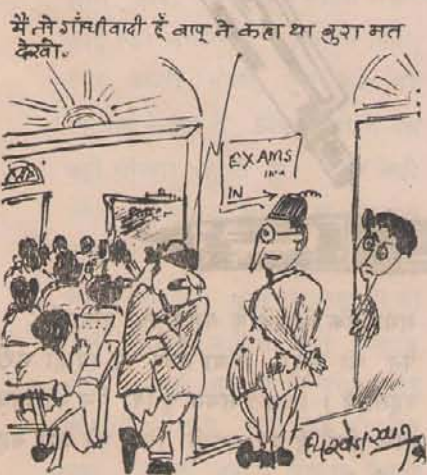 मैं तो गाँधीवादी हूँ बापू ने कहा था बुरा मत
देखो.
EXAMS
IN